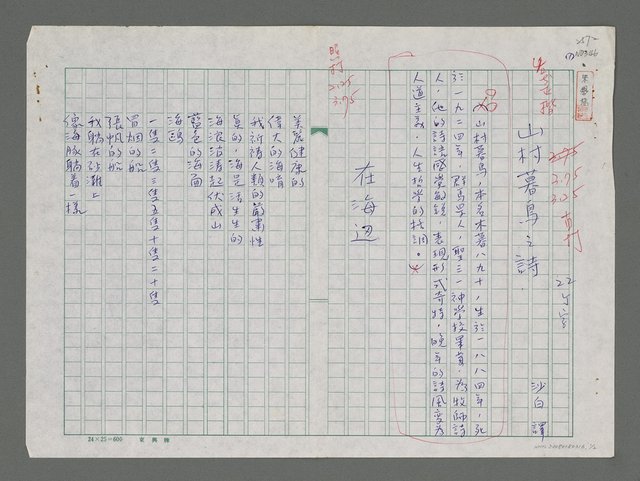 山村暮鳥之詩
沙白 譯
山村暮鳥,本名木暮八九十,生於一八八四年,死
於一九二四年,群馬県人,聖三一神學校畢業,為牧師詩
人,他的詩語感覺的銳,表現形式奇特,晚年的詩風變為
人道主義、人生哲學的格調。
在海边
美麗健康的
偉大的海唷
我祈禱人類的嚴肅性
真的,海是活生生的
海波洶湧起伏成山
藍色的海面
海鷗
一隻二隻三隻五隻十隻二十隻
冒烟的船
張帆的船
我躺在沙灘上
像海豚躺着一樣
照村
3.25
3.75
24×25=600